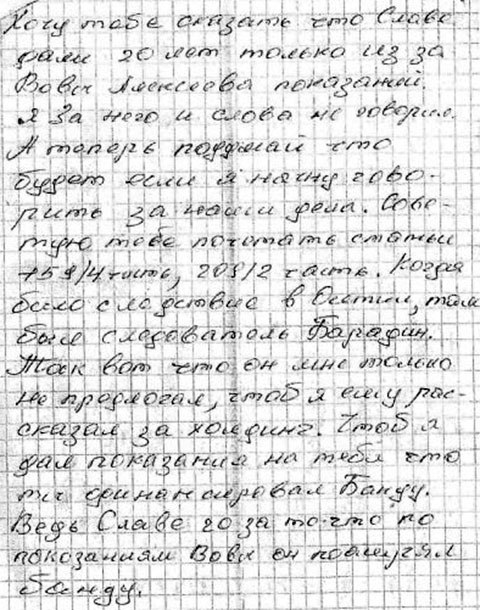 Хочу тебе сказать что Славе
дали 20 лет только из за
Вовы Алексеева показаний.
Я за него и слова не говорил.
А теперь подумай что
будет если я начну гово-
рить за наши дела. Сове-
тую тебе почетать статьи
159/4 часть, 209/2 часть. Когда
было следствие в Осетии, там
был следователь Барадин.
Так вот что он мне только
не предлогал, чтоб я ему рас-
сказал за холдинг. Чтоб я
дал показания на тебя что
ты финансировал Банду.
Ведь Славе 20 за то что по
показаниям Вовы он
банду.